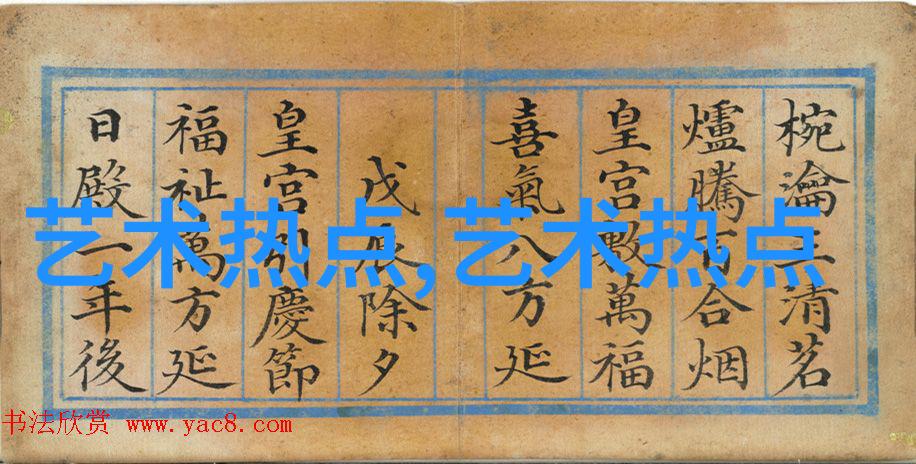 椀瀹三清茗
爐騰百合烟
皇宮敷萬福
喜氣八方延
戊辰除夕
皇宮別慶節
福祉萬方延
日殿一年後
艺术热点,艺术热点
书法欣赏 www.yac8.com